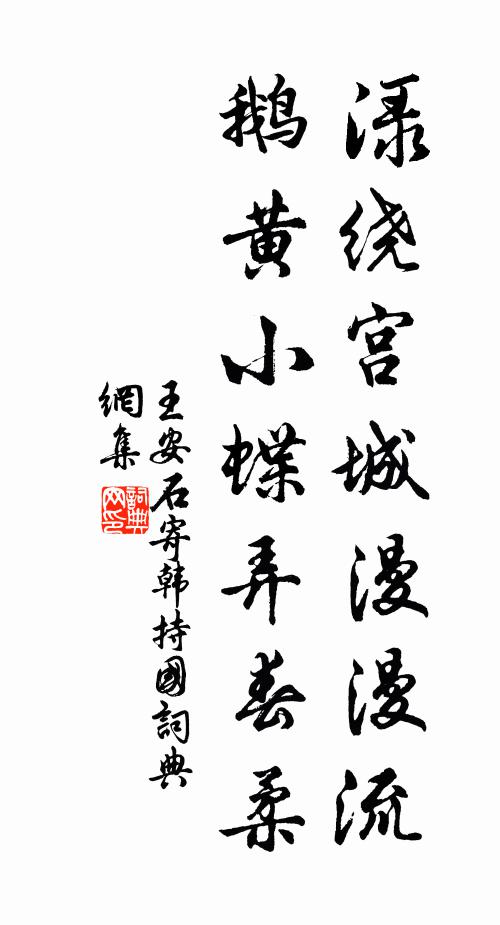 渌绕宫城漫漫流
鹅黄小蝶弄春柔
王安石寄韩持國詞典
網集
詞典
网印